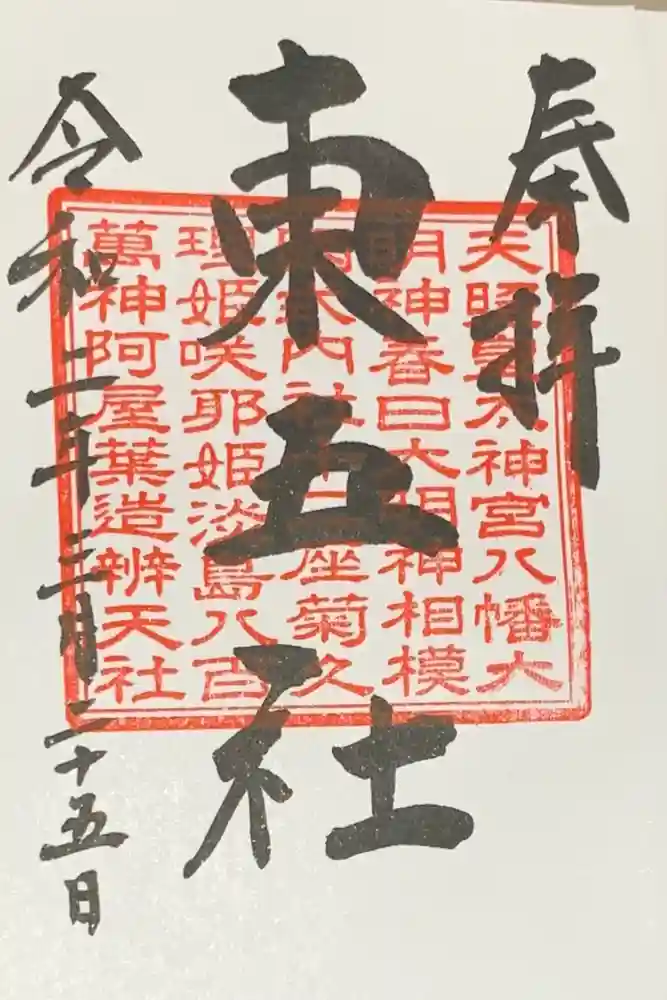 奉拝
東五社
令和二年三月二十五日
天照皇太神宮八幡大
明神春日大明神相模
國式内社十三座菊久
理姫咲耶姫淡島八百
萬神阿屋葉造辨天社